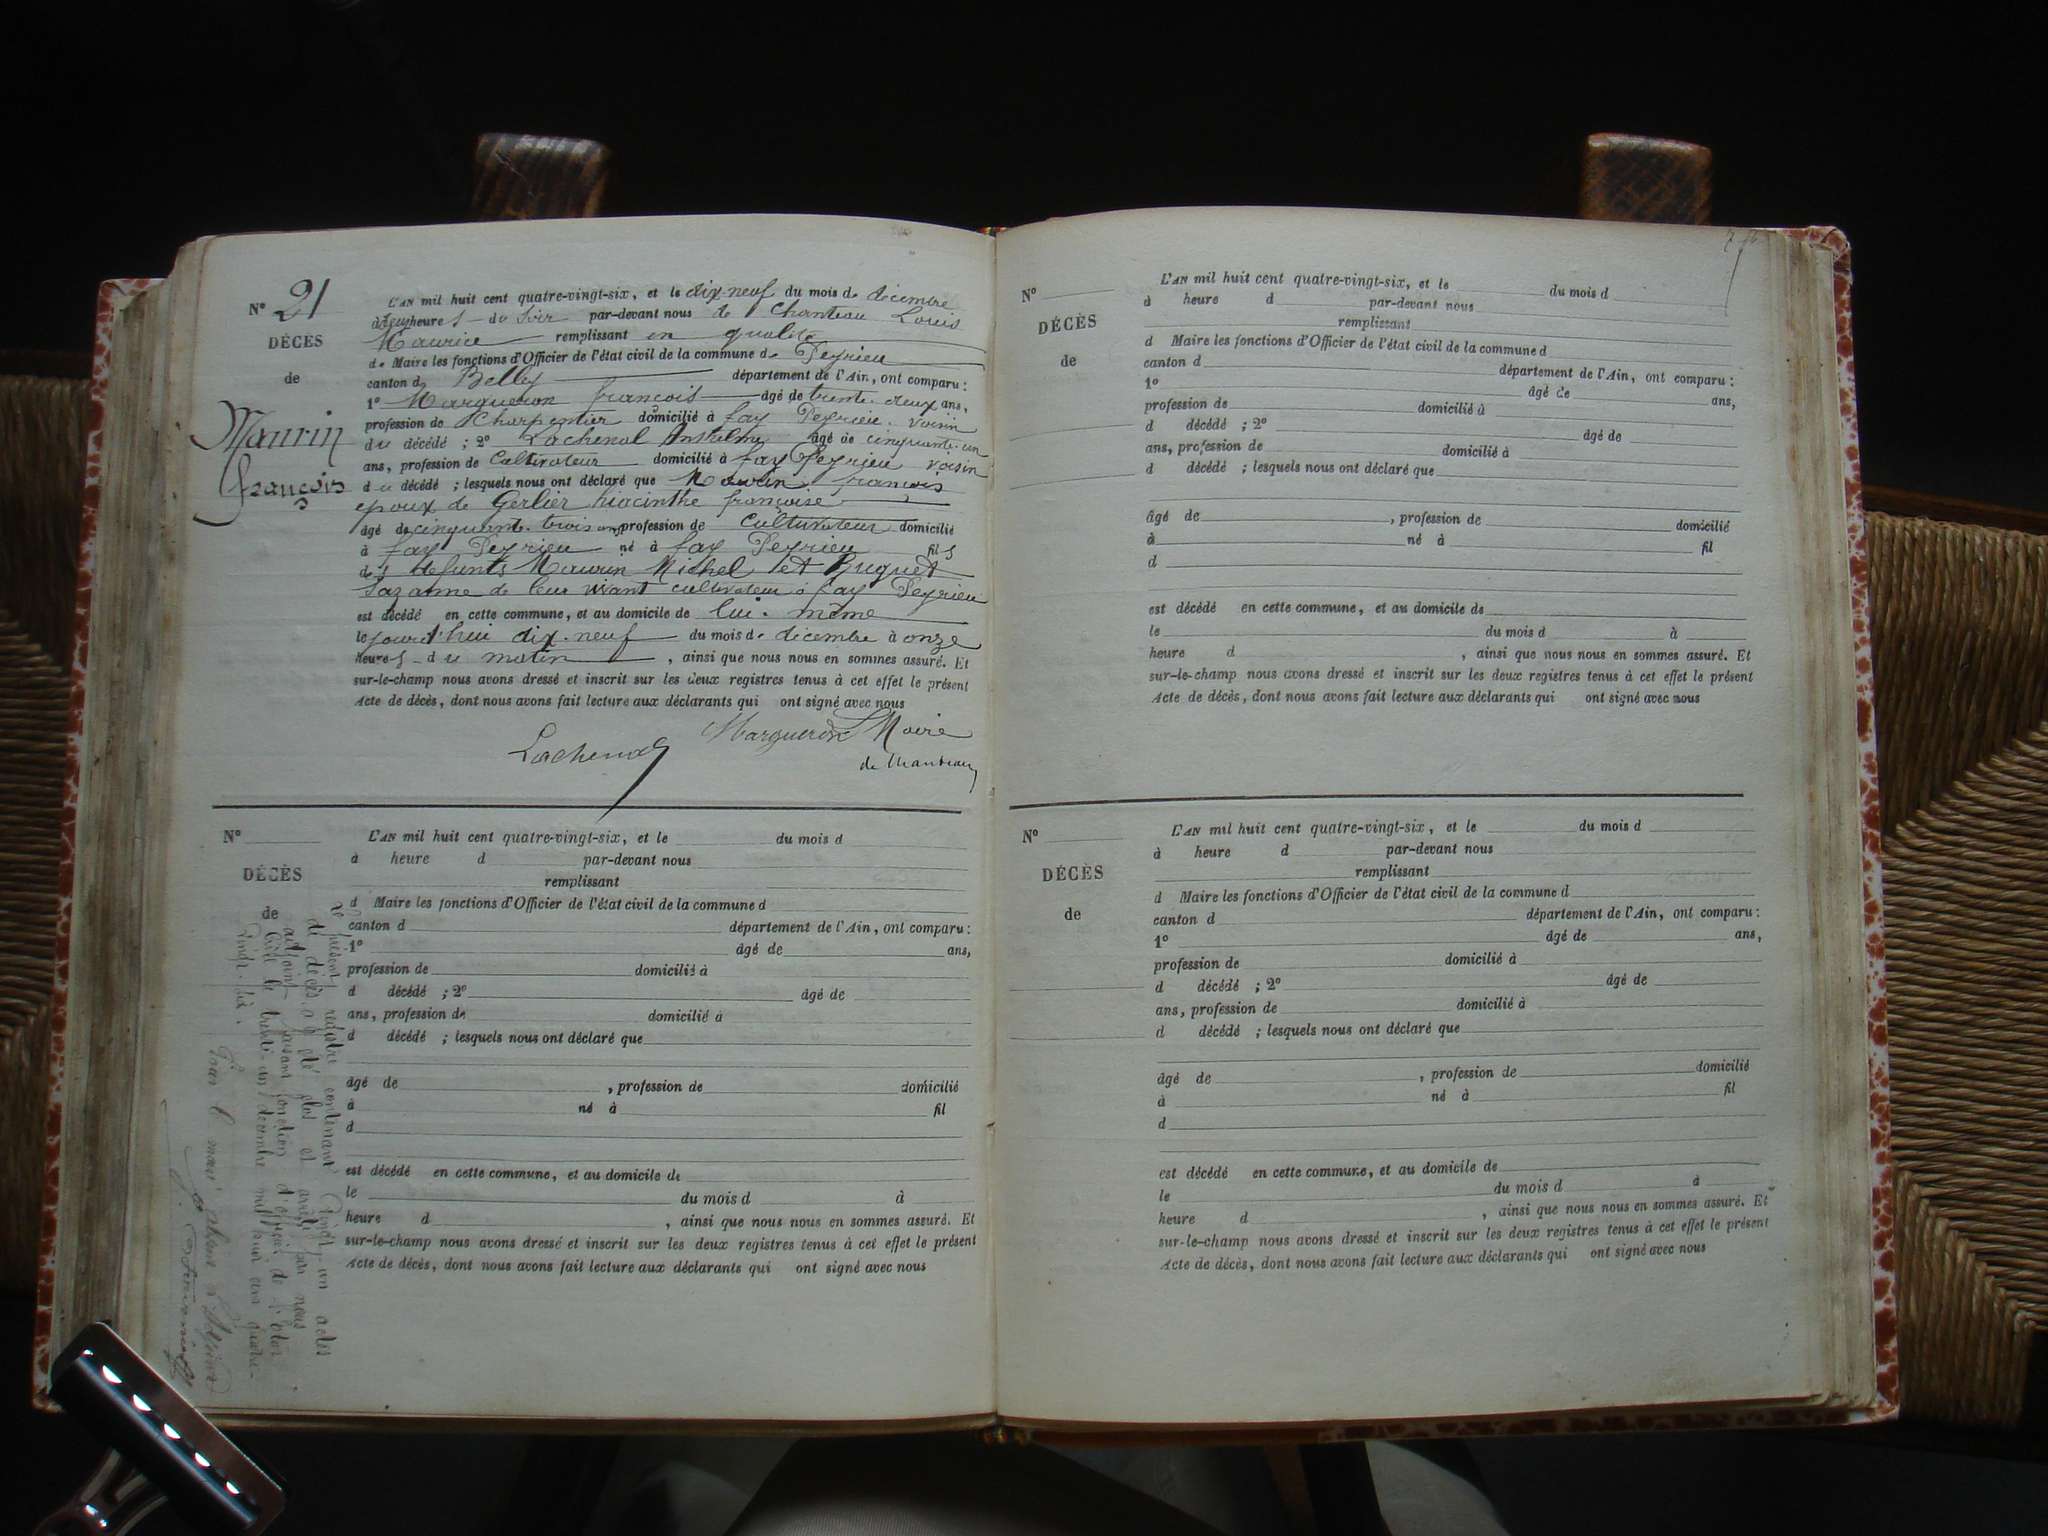 N° 21
DÉCÈS
de
Maurin
françois
L'AN mil huit cent quatre-vingt-six, et le dix-neuf du mois de décembre
à deux heures du soir par-devant nous de Chanteau Louis
Maurice remplissant en qualité
de Maire les fonctions d'Officier de l'état civil de la commune de Peyrieu
canton d Belley département de l'Ain, ont comparu :
1° Margueron françois âgé de trente-deux ans,
profession de Charpentier domicilié à fay Peyrieu. voisin
du décédé ; 2° Lachenal Anthelme âgé de cinquante-un
ans, profession de Cultivateur domicilié à fay Peyrieu voisin
du décédé ; lesquels nous ont déclaré que Maurin françois
époux de Gerlier hiacinthe françoise
âgé de cinquante-trois ans, profession de Cultivateur domicilié
à fay Peyrieu né à fay Peyrieu fils
des défunts Maurin Michel et Buguet
Suzanne de leur vivant cultivateur à fay Peyrieu
est décédé en cette commune, et au domicile de lui-même
le jourd'hui dix-neuf du mois de décembre à onze
heures du matin, ainsi que nous nous en sommes assuré. Et
sur-le-champ nous avons dressé et inscrit sur les deux registres tenus à cet effet le présent
Acte de décès, dont nous avons fait lecture aux déclarants qui ont signé avec nous
Lachenal Margueron Maire
de Chanteau
N°
DÉCÈS
de
L'AN mil huit cent quatre-vingt-six, et le du mois d
à heure d par-devant nous
remplissant
d Maire les fonctions d'Officier de l'état civil de la commune d
canton d département de l'Ain, ont comparu :
1° âgé de ans,
profession de domicilié à
d décédé ; 2° âgé de
ans, profession de domicilié à
d décédé ; lesquels nous ont déclaré que
âgé de , profession de domicilié
à né à fil
d
est décédé en cette commune, et au domicile de
le du mois d à
heure d , ainsi que nous nous en sommes assuré. Et
sur-le-champ nous avons dressé et inscrit sur les deux registres tenus à cet effet le présent
Acte de décès, dont nous avons fait lecture aux déclarants qui ont signé avec nous
Le présent registre contenant vingt-un actes
de décès a été clos et arrêté par nous
adjoint faisant fonction d'officier de l'état
civil le trente-un décembre mil huit cent quatre-
vingt-six.
Pour le maire
N°
DÉCÈS
de
L'AN mil huit cent quatre-vingt-six, et le du mois d
à heure d par-devant nous
remplissant
d Maire les fonctions d'Officier de l'état civil de la commune d
canton d département de l'Ain, ont comparu :
1° âgé de ans,
profession de domicilié à
d décédé ; 2° âgé de
ans, profession de domicilié à
d décédé ; lesquels nous ont déclaré que
âgé de , profession de domicilié
à né à fil
d
est décédé en cette commune, et au domicile de
le du mois d à
heure d , ainsi que nous nous en sommes assuré. Et
sur-le-champ nous avons dressé et inscrit sur les deux registres tenus à cet effet le présent
Acte de décès, dont nous avons fait lecture aux déclarants qui ont signé avec nous
N°
DÉCÈS
de
L'AN mil huit cent quatre-vingt-six, et le du mois d
à heure d par-devant nous
remplissant
d Maire les fonctions d'Officier de l'état civil de la commune d
canton d département de l'Ain, ont comparu :
1° âgé de ans,
profession de domicilié à
d décédé ; 2° âgé de
ans, profession de domicilié à
d décédé ; lesquels nous ont déclaré que
âgé de , profession de domicilié
à né à fil
d
est décédé en cette commune, et au domicile de
le du mois d à
heure d , ainsi que nous nous en sommes assuré. Et
sur-le-champ nous avons dressé et inscrit sur les deux registres tenus à cet effet le présent
Acte de décès, dont nous avons fait lecture aux déclarants qui ont signé avec nous